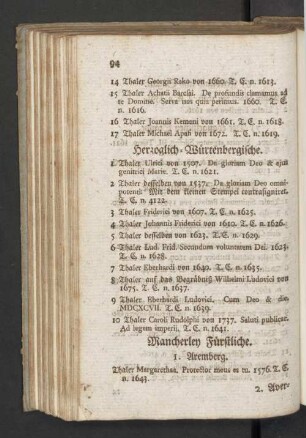 94
14 Thaler Georgii Rako von 1660. T. E. n. 1613.
15 Thaler Achatii Barcsai. De profundis clamamus ad
te Domine. Serva nos quia perimus. 1660. T. E.
n. 1616.
16 Thaler Joannis Kemeni von 1661. T. E. n. 1618.
17 Thaler Michael Apafi von 1672. T. E. n. 1619.
Herzoglich-Würtenbergische.
1 Thaler Ulrici von 1507. Da gloriam Deo & ejus
genitrici Marie. T. E. n. 1621.
2 Thaler desselben von 1537. Da gloriam Deo omni-
potenti. Mit dem kleinen Stempel contrasigniret.
T. E. n. 4122.
3 Thaler Friderici von 1607. T. E. n. 1625.
4 Thaler Johannis Friderici von 1610. T. E. n. 1626.
5 Thaler desselben von 1623. T. E. n. 1629.
6 Thaler Lud. Frid. Secundum voluntatem Dei. 1623.
T. E. n. 1628.
7 Thaler Eberhardi von 1640. T. E. n. 1635.
8 Thaler auf das Begräbniß Wilhelmi Ludovici von
1675. T. E. n. 1637.
9 Thaler Eberhardi Ludovici. Cum Deo & die.
MDCXCVII. T. E. n. 1639.
10 Thaler Caroli Rudolphi von 1737. Saluti publicae.
Ad legem imperii. T. E. n. 1641.
Mancherley Fürstliche.
1. Aremberg.
Thaler Margarethae. Protector meus es tu. 1576. T. E.
n. 1643.
2. Aver-